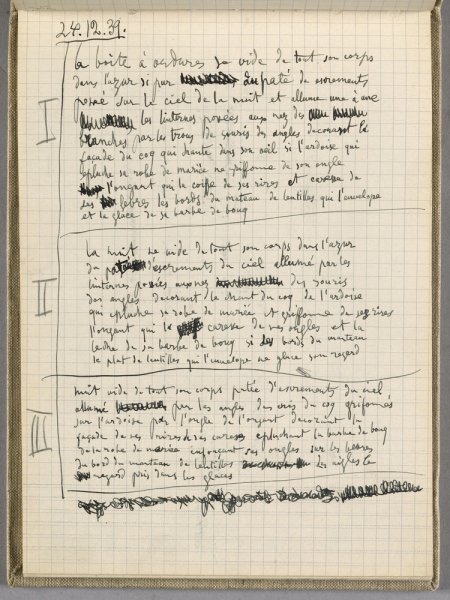 24.12.39.
la boîte à ordures se vide de tout son corps
dans l'azur si pur du pâté de excrements
posée sur le ciel de la nuit et allume une à une
les linternes posées aux nez des
branches par les trous de souris des angles decorant la
façade du coq qui chante dans son œil si l'ardoise qui
epluche sa robe de mariée ne griffonne de son ongle
l'onguent qui la coiffe de ses rires et caresse de
des lebres les bords du manteau de lentilles qui l'envelope
et la glace de sa barbe de bouq
I
la nuit se vide de tout son corps dans l'azur
du d'escrements du ciel allumé par les
linternes posées aux nez des souris
des angles decorant le chant du coq de l'ardoise
qui epluche sa robe de mariée et griffonne de ses rires
l'onguent qui le caresse de ses ongles et la
de sa barbe de bouq si des bords du manteau
le plat de lentilles qui l'envelope ne glace son regard
II
nuit vide de tout son corps patée d'escrements du ciel
allumé par les angles des cris du coq grifonnés
sur l'ardoise par l'ongle de l'onguent decorant la
façade de ses rires de ses careses epluchant la barbe de bouq
de la robe de mariée enfonçant ses ongles sur les
du bord du manteau de lentilles les aigles le
regard pris dans les glaces
III